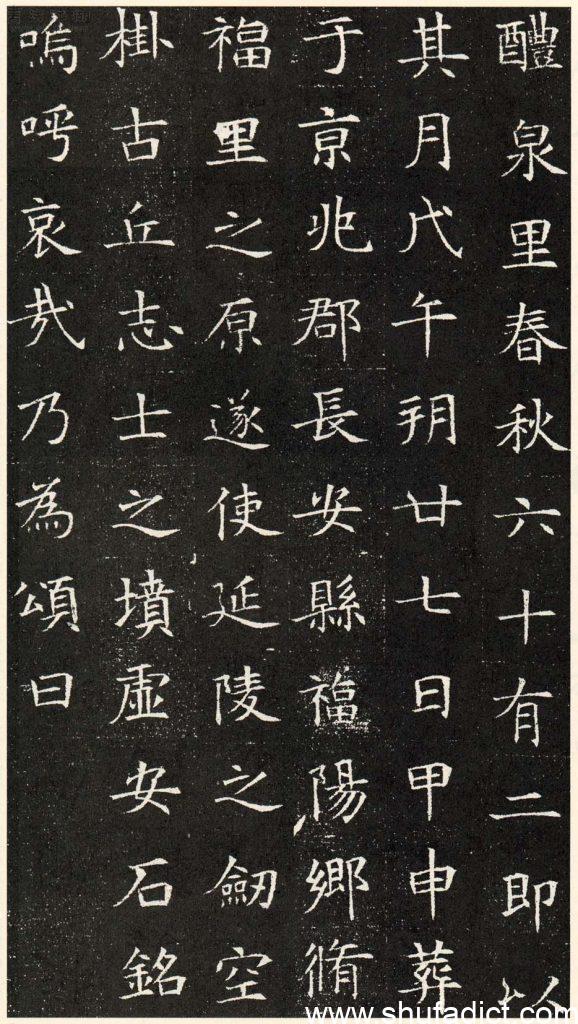 醴泉里春秋六十有二即以
其月戊午朔廿七日甲申葬
于京兆郡長安縣福陽鄉脩
福里之原遂使延陵之劒空
掛古丘志士之墳虛安石銘
嗚呼哀哉乃為頌曰
www.shufadict.com